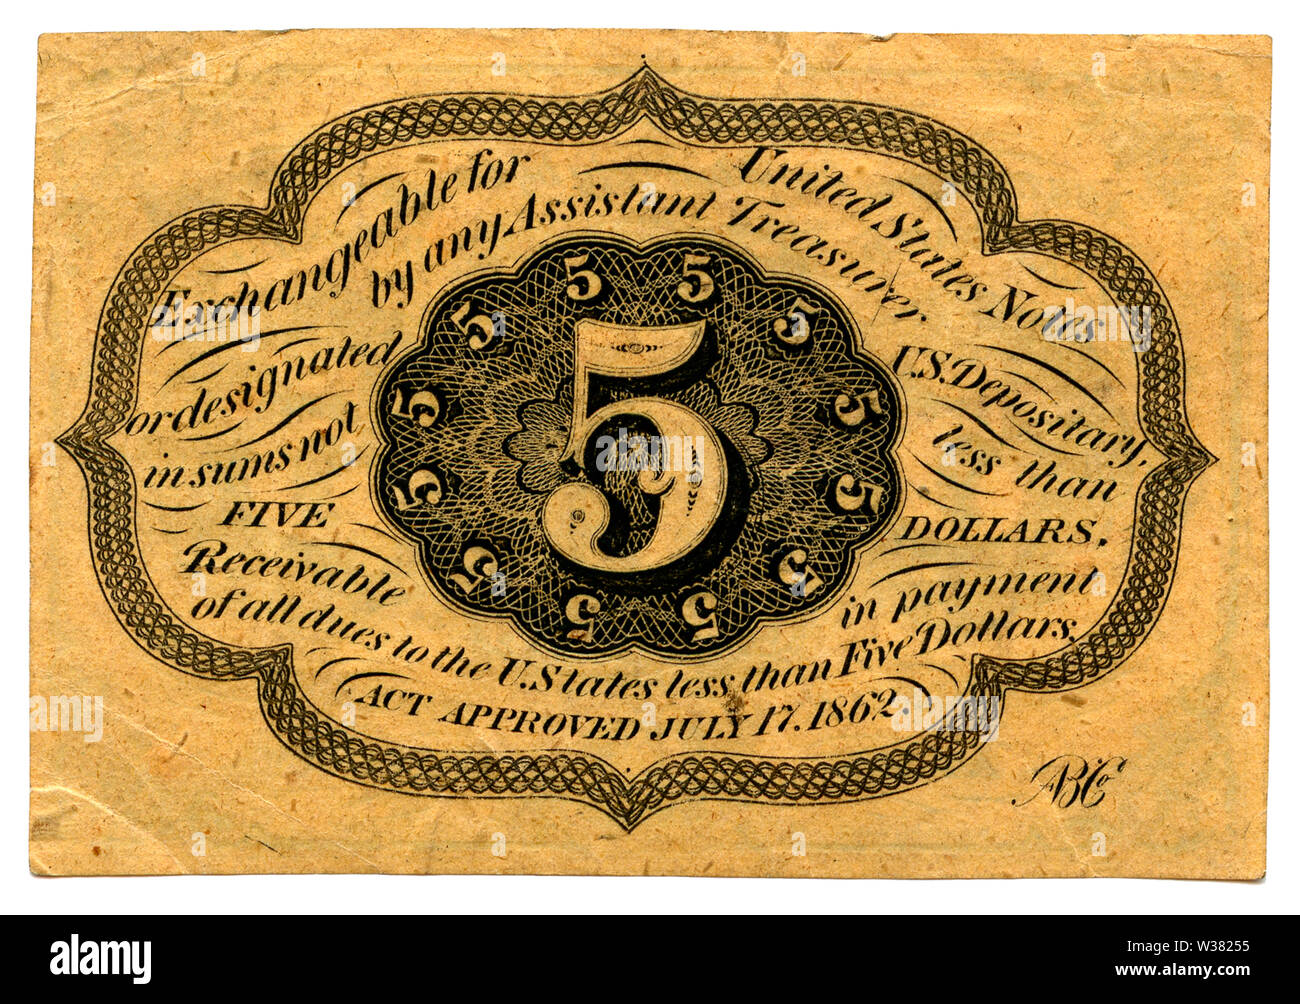 Exchangeable for United States Notes
by any Assistant Treasurer.
or designated U.S. Depositary,
in sums not less than
FIVE DOLLARS.
Receivable in payment
of all dues to the U. States less than Five Dollars.
ACT APPROVED JULY 17. 1862.
5
5 5
5 5
5 5
5 5
5 5
5 5
ABCo
alamy
Image ID: W38255
www.alamy.com